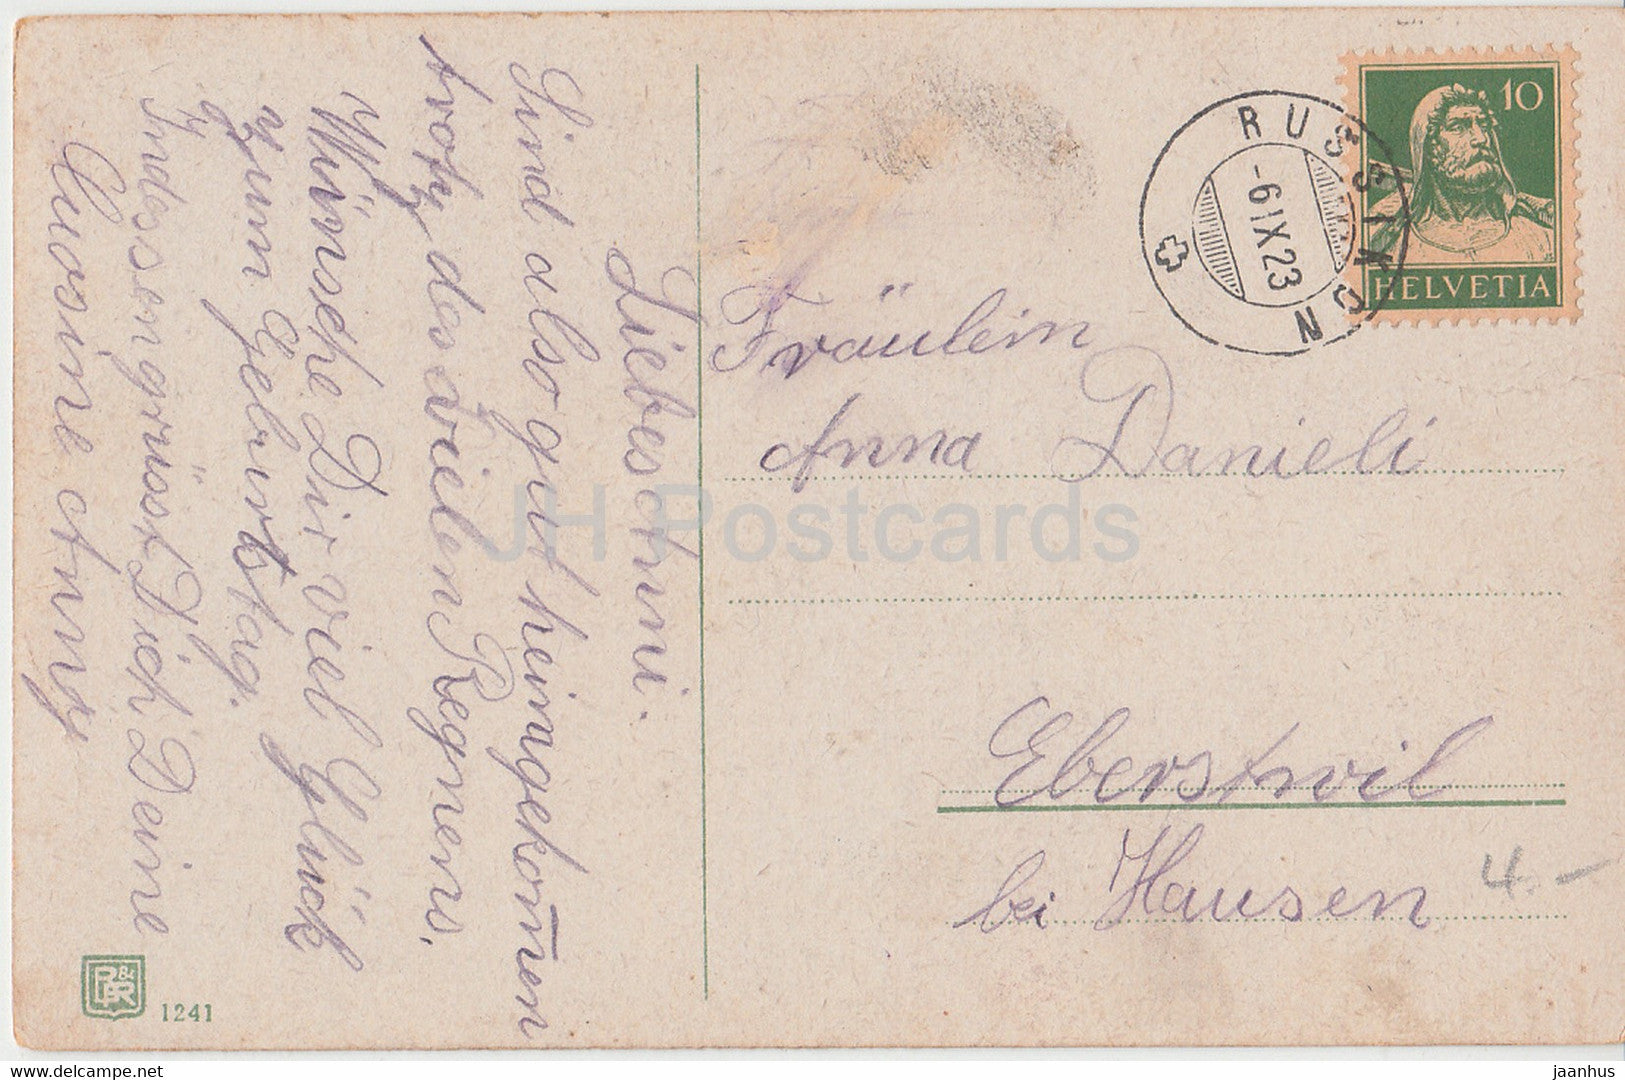 Liebes Anni.
Sind also gut heimgekom̅en
trotz des vielen Regnens.
Wünsche Dir viel Glück
zum Geburtstag.
Indessen grüsst Dich Deine
Cousine Anny
P&R
1241
RUSSIKON
-6IX23
10
HELVETIA
Fräulein
Anna Danieli
Eberstwil
bei Hausen
4.–
JH Postcards
jaanhus.com
jaanhus